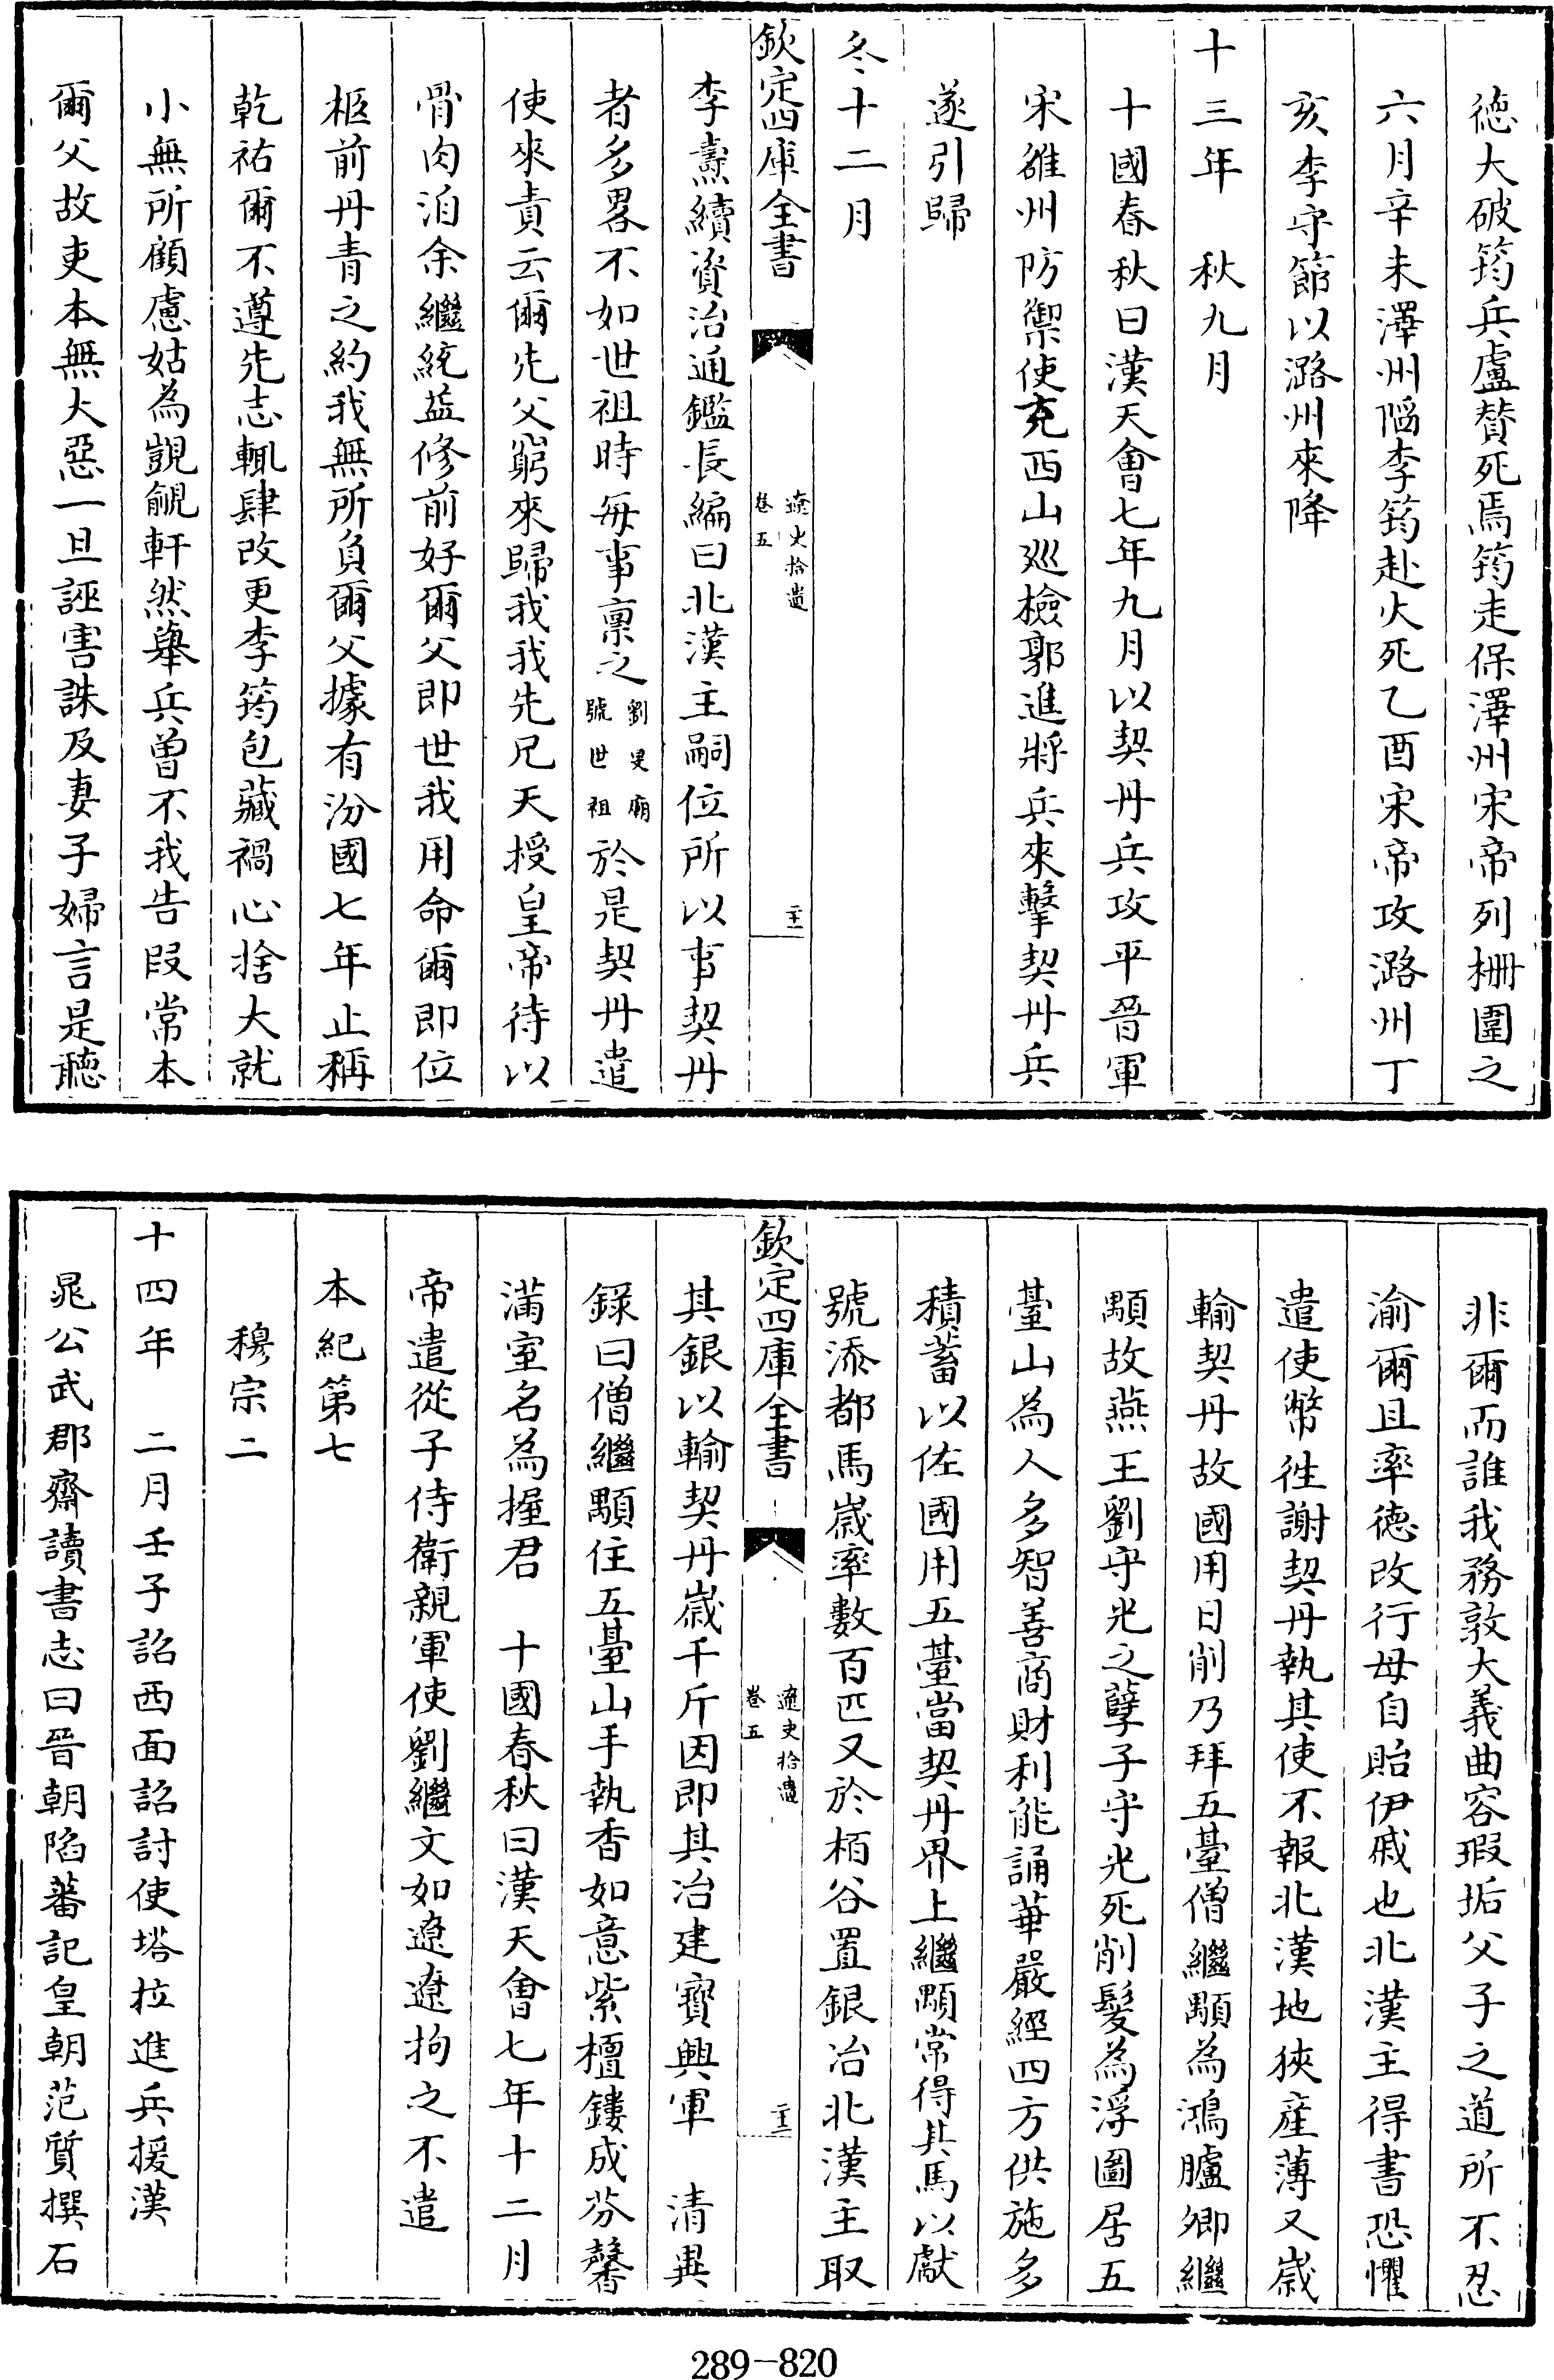 德大破筠兵盧贊死焉筠走保澤州宋帝列栅圍之
六月辛未澤州陷李筠赴火死乙酉宋帝攻潞州丁
亥李守節以潞州來降
十三年　秋九月
十國春秋曰漢天會七年九月以契丹兵攻平晉軍
宋雒州防禦使充西山廵檢郭進將兵來擊契丹兵
遂引歸
冬十二月
欽定四庫全書
遼史拾遺
卷五
二十一
李燾續資治通鑑長編曰北漢主嗣位所以事契丹
者多畧不如世祖時每事稟之劉旻廟號世祖於是契丹遣
使來責云爾先父窮來歸我我先兄天授皇帝待以
骨肉洎余繼統益修前好爾父即世我用命爾即位
柩前丹青之約我無所負爾父據有汾國七年止稱
乾祐爾不遵先志輒肆改更李筠包藏禍心捨大就
小無所顧慮姑為覬覦軒然舉兵曾不我告叚常本
爾父故吏本無大惡一旦誣害誅及妻子婦言是聽
非爾而誰我務敦大義曲容瑕垢父子之道所不忍
渝爾且率德改行毋自貽伊戚也北漢主得書恐懼
遣使幣徃謝契丹執其使不報北漢地狹產薄又歲
輸契丹故國用日削乃拜五臺僧繼顒為鴻臚卿繼
顒故燕王劉守光之孽子守光死削髮為浮圖居五
臺山為人多智善商財利能誦華嚴經四方供施多
積蓄以佐國用五臺當契丹界上繼顒常得其馬以獻
號添都馬歲率數百匹又於栢谷置銀冶北漢主取
欽定四庫全書
遼史拾遺
卷五
二十二
其銀以輸契丹歲千斤因即其冶建寶興軍　清異
錄曰僧繼顒住五臺山手執香如意紫檀鏤成芬馨
滿室名為握君　十國春秋曰漢天會七年十二月
帝遣從子侍衛親軍使劉繼文如遼遼拘之不遣
本紀第七
穆宗二
十四年　二月壬子詔西面詔討使塔拉進兵援漢
晁公武郡齋讀書志曰晉朝陷蕃記皇朝范質撰石
289-820